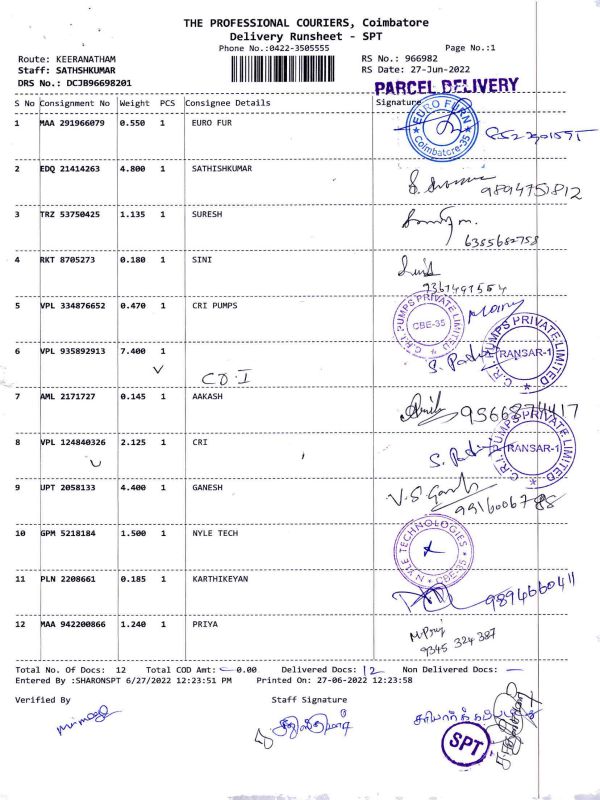 THE PROFESSIONAL COURIERS, Coimbatore
Delivery Runsheet - SPT
Phone No.:0422-3505555 Page No.:1
Route: KEERANATHAM RS No.: 966982
Staff: SATHSHKUMAR RS Date: 27-Jun-2022
DRS No.: DCJB96698201 PARCEL DELIVERY
S No Consignment No Weight PCS Consignee Details Signature
1 MAA 291966079 0.550 1 EURO FUR
EURO FUR
Coimbatore-35
2 EDQ 21414263 4.800 1 SATHISHKUMAR
9894751812
3 TRZ 53750425 1.135 1 SURESH
6385682758
4 RKT 8705273 0.180 1 SINI
7367491554
5 VPL 334876652 0.470 1 CRI PUMPS
C.R.I. PUMPS PRIVATE LIMITED
CBE-35
6 VPL 935892913 7.400 1
C.R.I. PUMPS PRIVATE LIMITED
RANSAR-1
7 AML 2171727 0.145 1 AAKASH
9566874417
8 VPL 124840326 2.125 1 CRI
C.R.I. PUMPS PRIVATE LIMITED
RANSAR-1
9 UPT 2058133 4.400 1 GANESH
10 GPM 5218184 1.500 1 NYLE TECH
NYLE TECHNOLOGIES
CBE-35
11 PLN 2208661 0.185 1 KARTHIKEYAN
9894660411
12 MAA 942200866 1.240 1 PRIYA
9345 324 387
Total No. Of Docs: 12 Total COD Amt: 0.00 Delivered Docs: 12 Non Delivered Docs: —
Entered By :SHARONSPT 6/27/2022 12:23:51 PM Printed On: 27-06-2022 12:23:58
Verified By Staff Signature
SPT